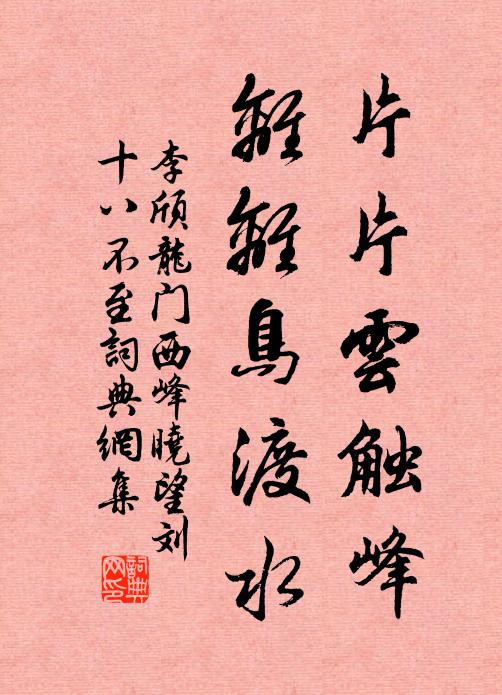 片片雲触峰
離離鳥渡水
李頎龍门西峰曉望刘
十八不至詞典網集
詞典
网印